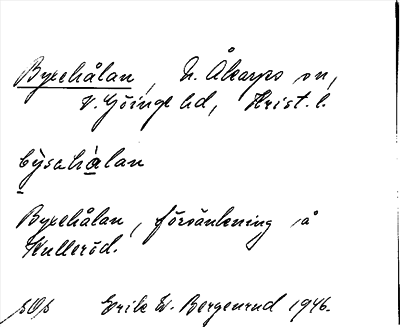 Byxehålan, N. Åkarps sn,
V. Göinge hd, Krist. l.
bysahålan
Byxehålan, försänkning å
Hulleröd.
Erik W. Bergenrud 1946.